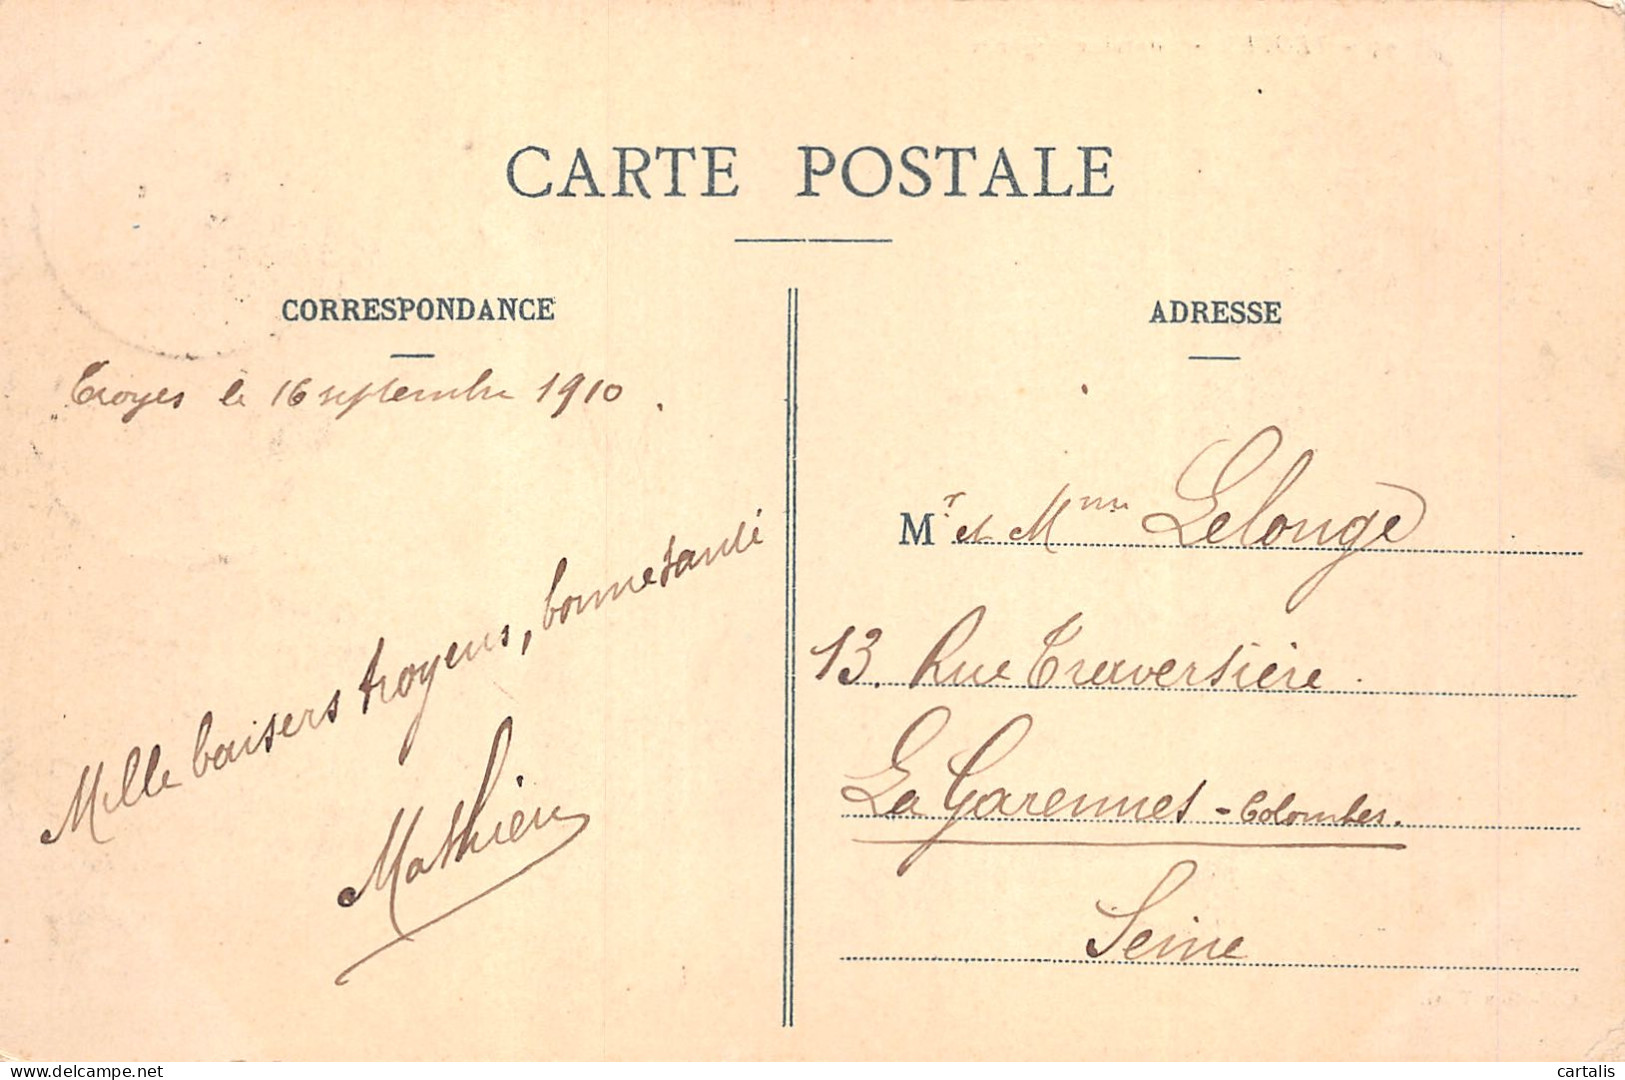 CARTE POSTALE
CORRESPONDANCE
Troyes le 16 septembre 1910.
Mille baisers troyens, bonne santé
Mathieu
ADRESSE
Mr. et Mme Lelonge
13. Rue Traversière.
La Garennes-Colombes.
Seine
delcampe.net
cartalis